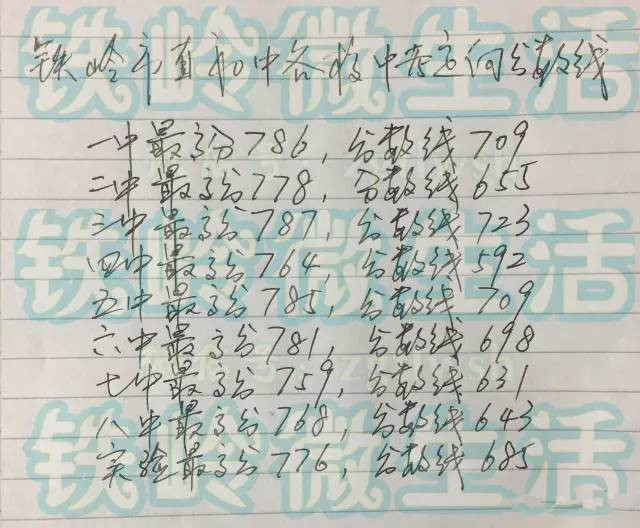 铁岭市直初中各校中考定向分数线
一中最高分786，分数线709
二中最高分778，分数线655
三中最高分787，分数线723
四中最高分764，分数线592
五中最高分785，分数线709
六中最高分781，分数线698
七中最高分759，分数线631
八中最高分768，分数线643
实验最高分776，分数线685
铁岭微生活
铁岭微生活
铁岭微生活